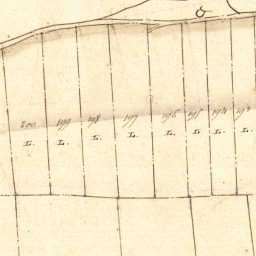 200 199 198 197 196 195 194 193
L. L. L. L. L. L. L. L.